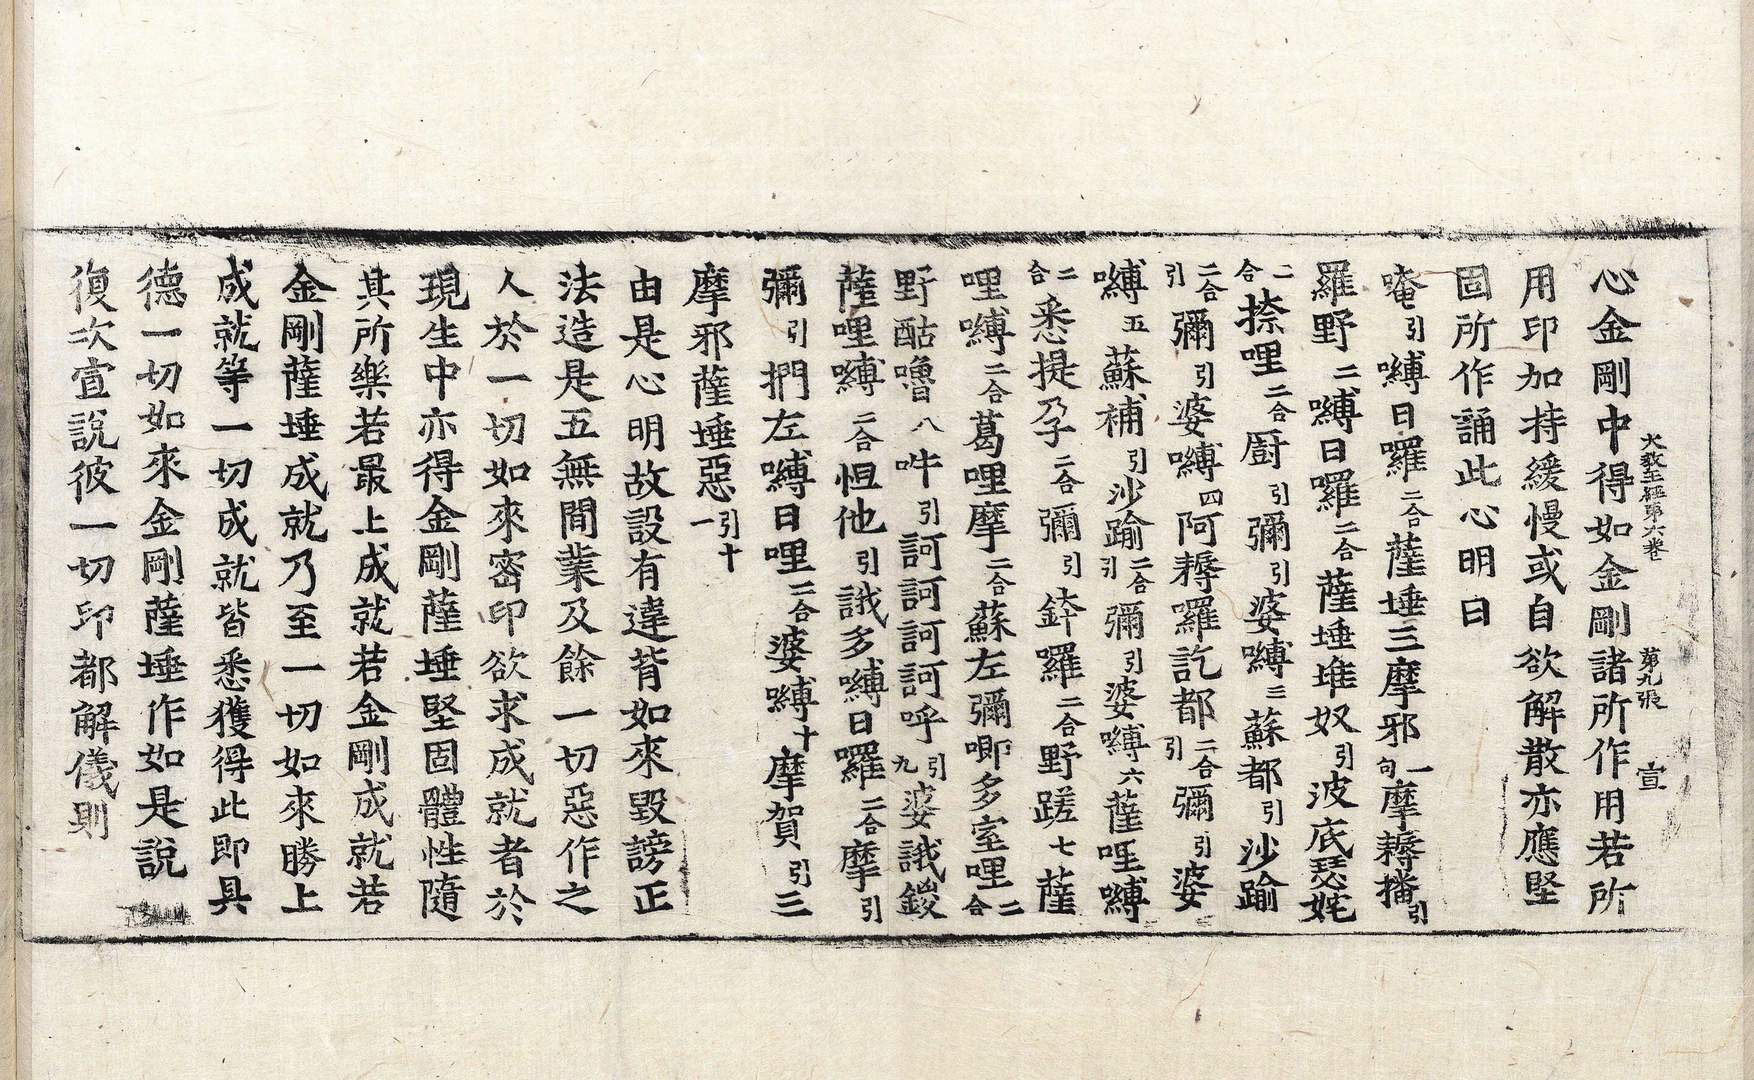 大教王經第六卷 第九張 宣
心金剛中得如金剛諸所作用若所
用印加持緩慢或自欲解散亦應堅
固所作誦此心明曰
唵引嚩日囉二合薩埵三摩邪一句摩耨播引
羅野二嚩日囉二合薩埵堆奴引波底瑟姹
二合捺哩二合厨引彌引婆嚩三蘇都引沙踰
二合引彌引婆嚩四阿耨羅訖都二合引彌引婆
嚩五蘇補引沙踰二合引彌引婆嚩六薩哩嚩
二合悉提孕二合彌引鉢羅二合野蹉七薩
哩嚩二合葛哩摩二合蘇左彌唧多室哩二合
野酤嚕八吽引訶訶訶訶呼引九婆誐鑁
薩哩嚩二合怛他引誐多嚩日囉二合摩引
彌引捫左嚩日哩二合婆嚩十摩賀引三
摩邪薩埵惡引十一
由是心明故設有違背如來毀謗正
法造是五無間業及餘一切惡作之
人於一切如來密印欲求成就者於
現生中亦得金剛薩埵堅固體性隨
其所樂若最上成就若金剛成就若
金剛薩埵成就乃至一切如來勝上
成就等一切成就皆悉獲得此即具
德一切如來金剛薩埵作如是說
復次宣說彼一切印都解儀則